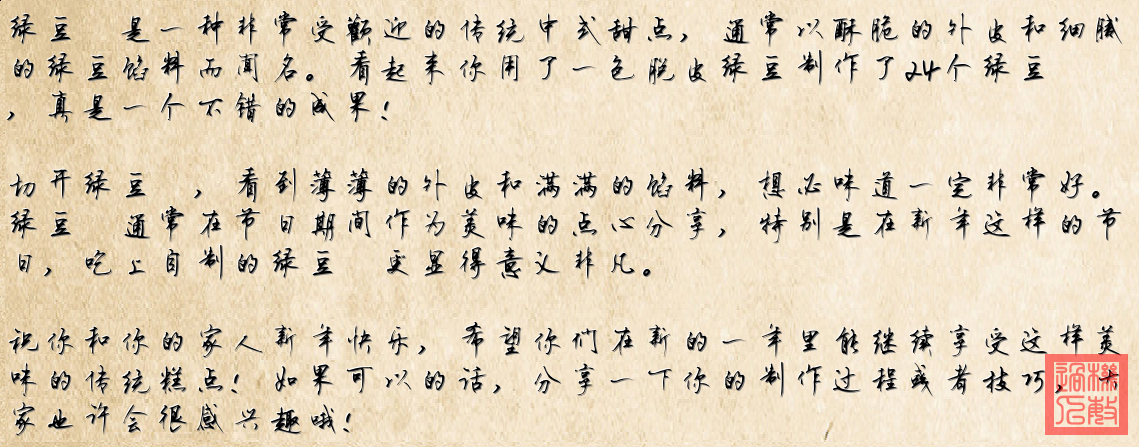 绿豆 是一种非常受欢迎的传统中式甜点，通常以酥脆的外皮和细腻
的绿豆馅料而闻名。看起来你用了一包脱皮绿豆制作了24个绿豆
，真是一个不错的成果！
切开绿豆 ，看到薄薄的外皮和满满的馅料，想必味道一定非常好。
绿豆 通常在节日期间作为美味的点心分享，特别是在新年这样的节
日，吃上自制的绿豆 更显得意义非凡。
祝你和你的家人新年快乐，希望你们在新的一年里能继续享受这样美
味的传统糕点！如果可以的话，分享一下你的制作过程或者技巧，大
家也许会很感兴趣哦！